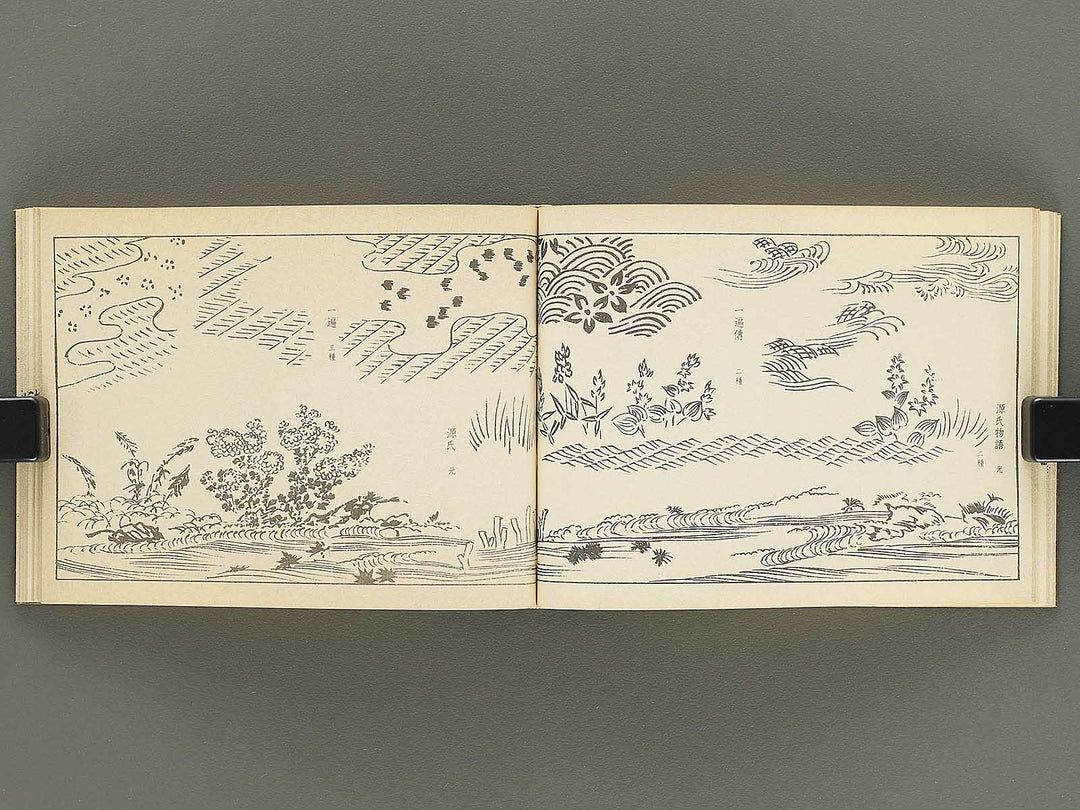 源氏物語 光
二種
一遍傳 二種
源氏 光
一遍 三種